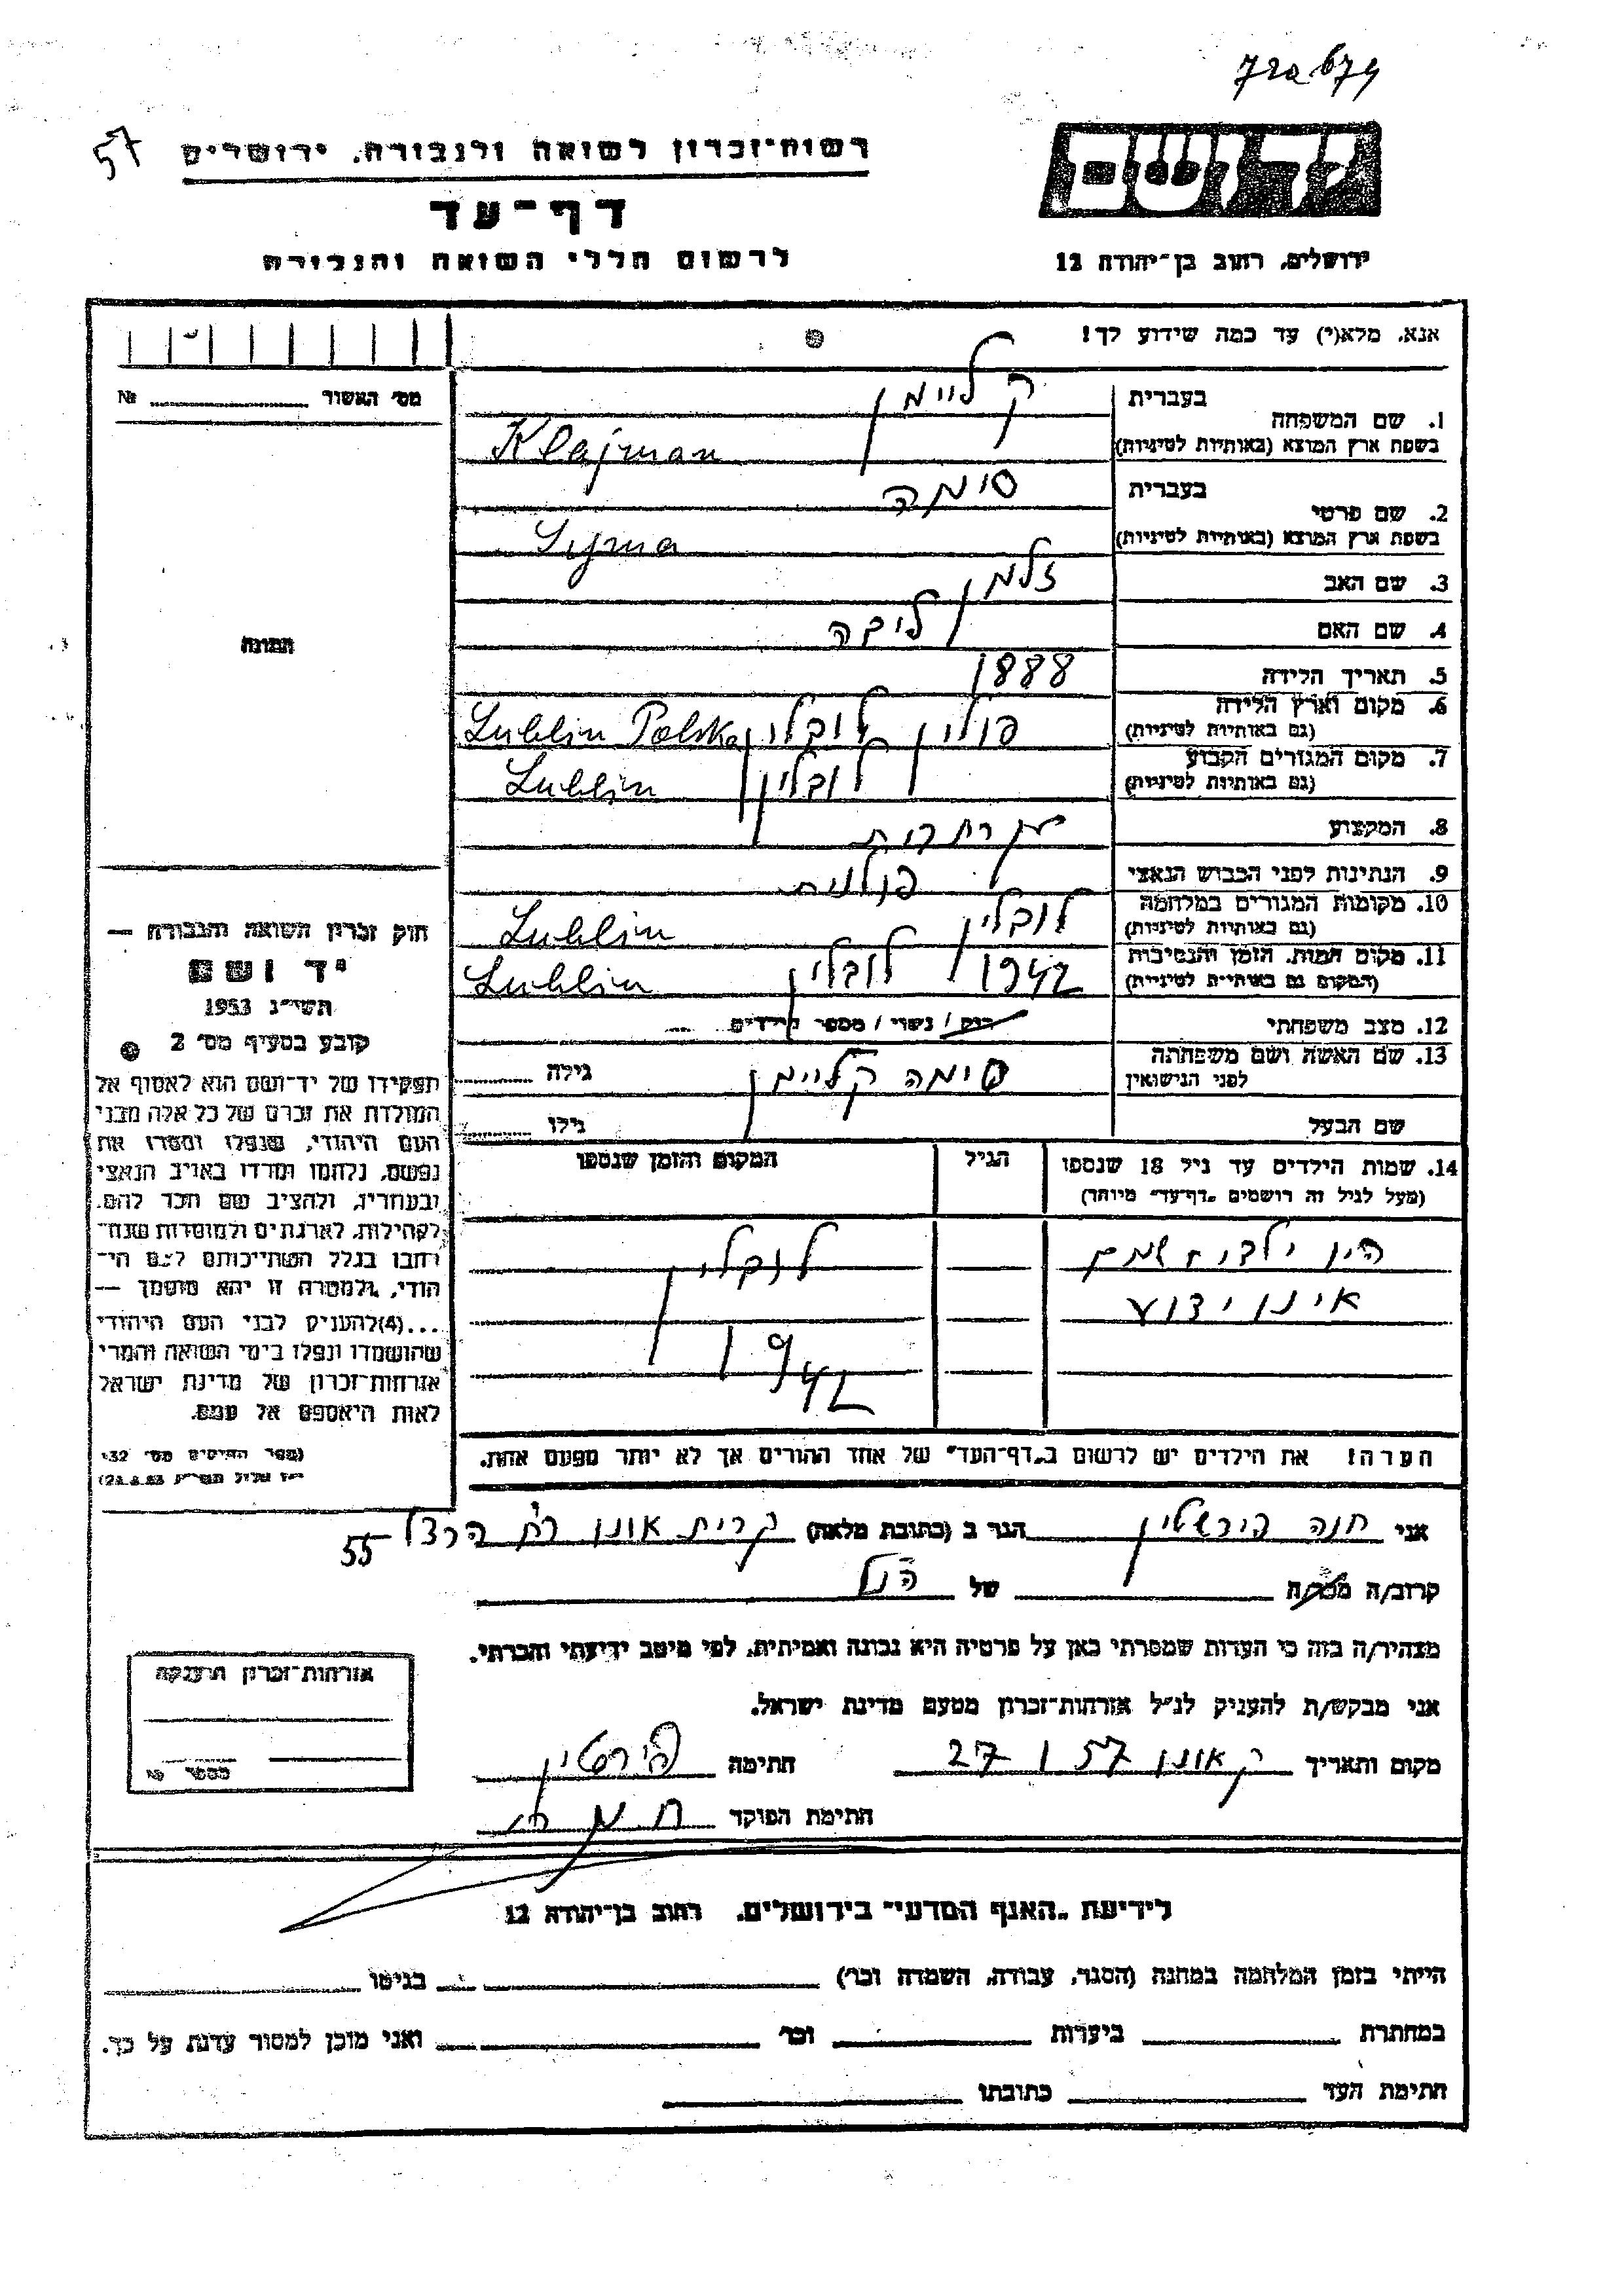 57
רשות־זכרון לשואה ולגבורה, ירושלים
דף־עד
לרשום חללי השואה והגבורה
ירושלים, רחוב בן־יהודה 12
אנא, מלא(י) עד כמה שידוע לך!
מס׳ האשור № 
1. שם המשפחה
בעברית קליימן
בשפת ארץ המוצא (באותיות לטיניות) Klajman
2. שם פרטי
בעברית סימה
בשפת ארץ המוצא (באותיות לטיניות) Syma
3. שם האב זלמן
4. שם האם ליבה
5. תאריך הלידה 1888
6. מקום וארץ הלידה (גם באותיות לטיניות) פולין לובלין Lublin Polska
7. מקום המגורים הקבוע (גם באותיות לטיניות) לובלין Lublin
8. המקצוע
9. הנתינות לפני הכבוש הנאצי פולנית
10. מקומות המגורים במלחמה (גם באותיות לטיניות) לובלין Lublin
11. מקום המות, הזמן והנסיבות (המקום גם באותיות לטיניות) 1942 לובלין Lublin
12. מצב משפחתי רוק / נשוי / מספר הילדים
13. שם האשה ושם משפחתה לפני הנישואין סימה קליימן גילה
שם הבעל גילו
14. שמות הילדים עד גיל 18 שנספו הגיל המקום והזמן שנספו
(מעל לגיל זה רושמים „דף־עד״ מיוחד)
היו ילדים שמם לובלין
אינו ידוע
1942
הערה! את הילדים יש לרשום ב„דף־העד״ של אחד ההורים אך לא יותר מפעם אחת.
התמונה
חוק זכרון השואה והגבורה —
יד ושם
תשי״ג 1953
קובע בסעיף מס׳ 2
תפקידו של יד־ושם הוא לאסוף אל
המולדת את זכרם של כל אלה מבני
העם היהודי, שנפלו ומסרו את
נפשם, נלחמו ומרדו באויב הנאצי
ובעוזריו, ולהציב שם וזכר להם,
לקהילות, לארגונים ולמוסדות שנח־
רבו בגלל השתייכותם לעם הי־
הודי, ולמטרה זו יהא מוסמך —
...(4) להעניק לבני העם היהודי
שהושמדו ונפלו בימי השואה והמרי
אזרחות־זכרון של מדינת ישראל
לאות היאספם אל עמם.
(ספר החוקים מס׳ 132
אני חנה פירשטיין הגר ב (כתובת מלאה) קרית אונו רח הרצל 55
קרוב/ה מכר/ה של הנ״ל
מצהיר/ה בזה כי העדות שמסרתי כאן על פרטיה היא נכונה ואמיתית, לפי מיטב ידיעתי והכרתי.
אני מבקש/ת להעניק לנ״ל אזרחות־זכרון מטעם מדינת ישראל.
מקום ותאריך ק אונו 27 1 57 חתימה פירשטיין
חתימת הפוקד
אזרחות־זכרון הוענקה
מספר №
לידיעת „האגף המדעי״ בירושלים, רחוב בן־יהודה 12
הייתי בזמן המלחמה במחנה (הסגר, עבודה, השמדה וכו׳) בגיטו
במחתרת ביערות וכו׳ ואני מוכן למסור עדות על כך.
חתימת העד כתובתו